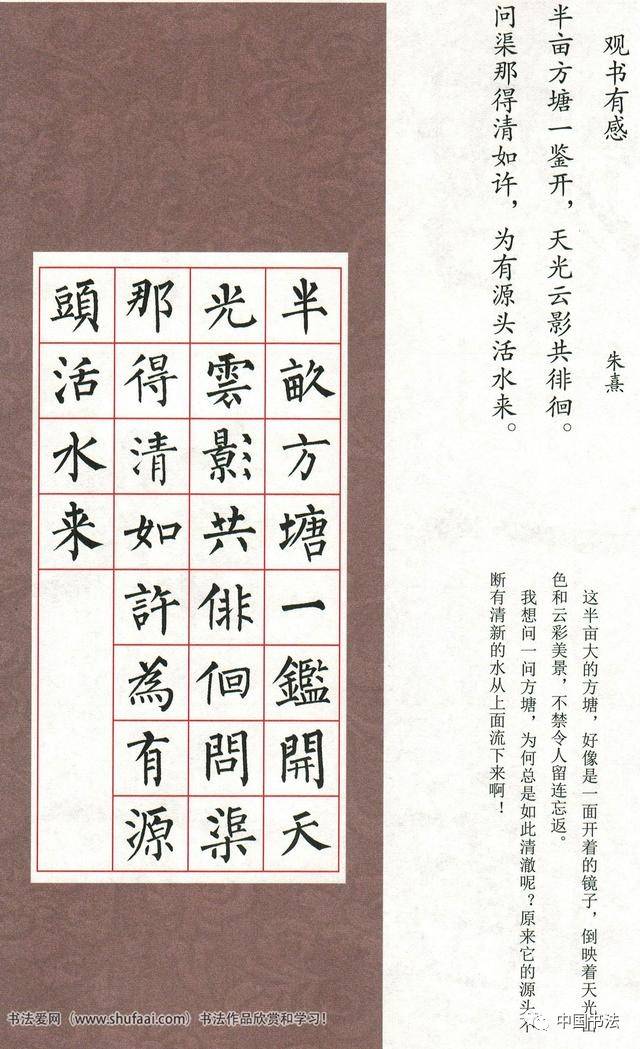 观书有感
朱熹
半亩方塘一鉴开，天光云影共徘徊。
问渠那得清如许，为有源头活水来。
这半亩大的方塘，好像是一面开着的镜子，倒映着天光山
色和云彩美景，不禁令人留连忘返。
我想问一问方塘，为何总是如此清澈呢？原来它的源头不
断有清新的水从上面流下来啊！
半畝方塘一鑑開天
光雲影共俳佪問渠
那得清如許為有源
頭活水来
书法爱网（www.shufaai.com）书法作品欣赏和学习！
中国书法